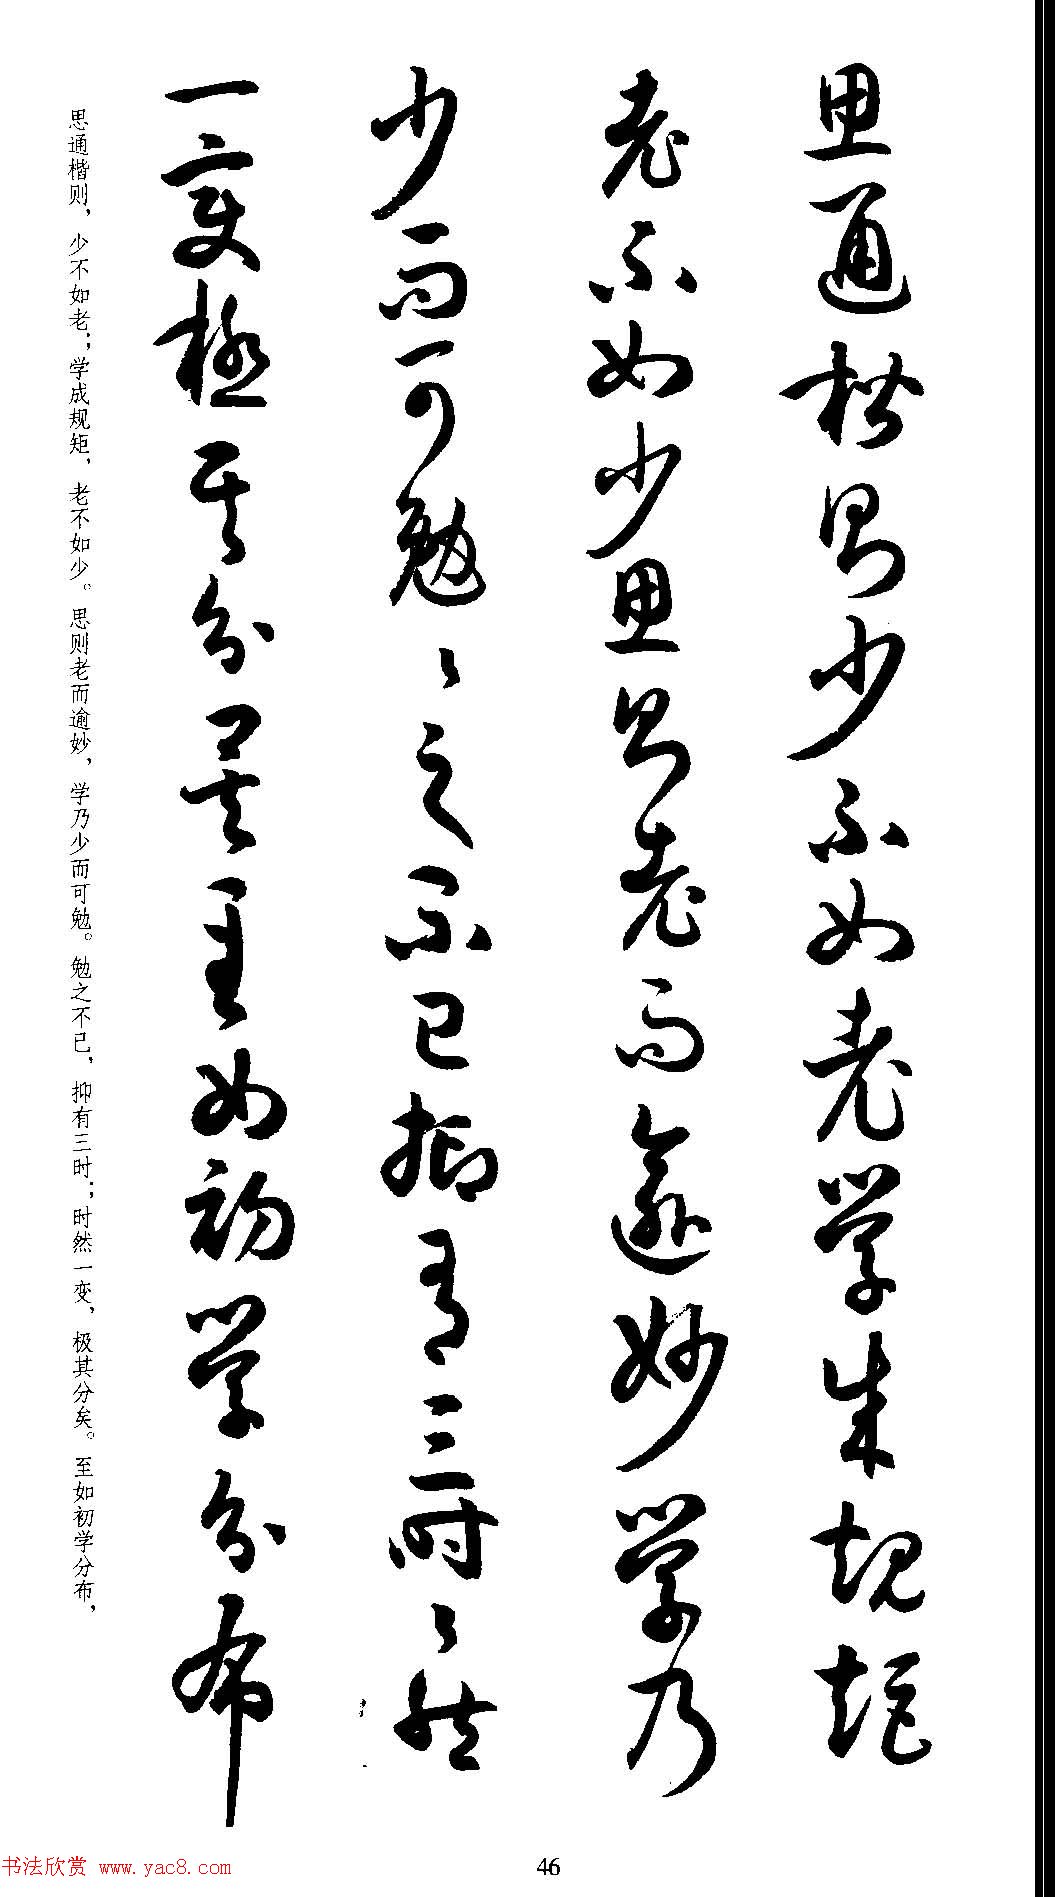 思通楷则少不如老学成规矩
老不如少思则老而逾妙学乃
少而可勉勉之不已抑有三时时然
一变极其分矣至如初学分布
思通楷则，少不如老；学成规矩，老不如少。思则老而逾妙，学乃少而可勉。勉之不已，抑有三时；时然一变，极其分矣。至如初学分布，
书法欣赏 www.yac8.com
46